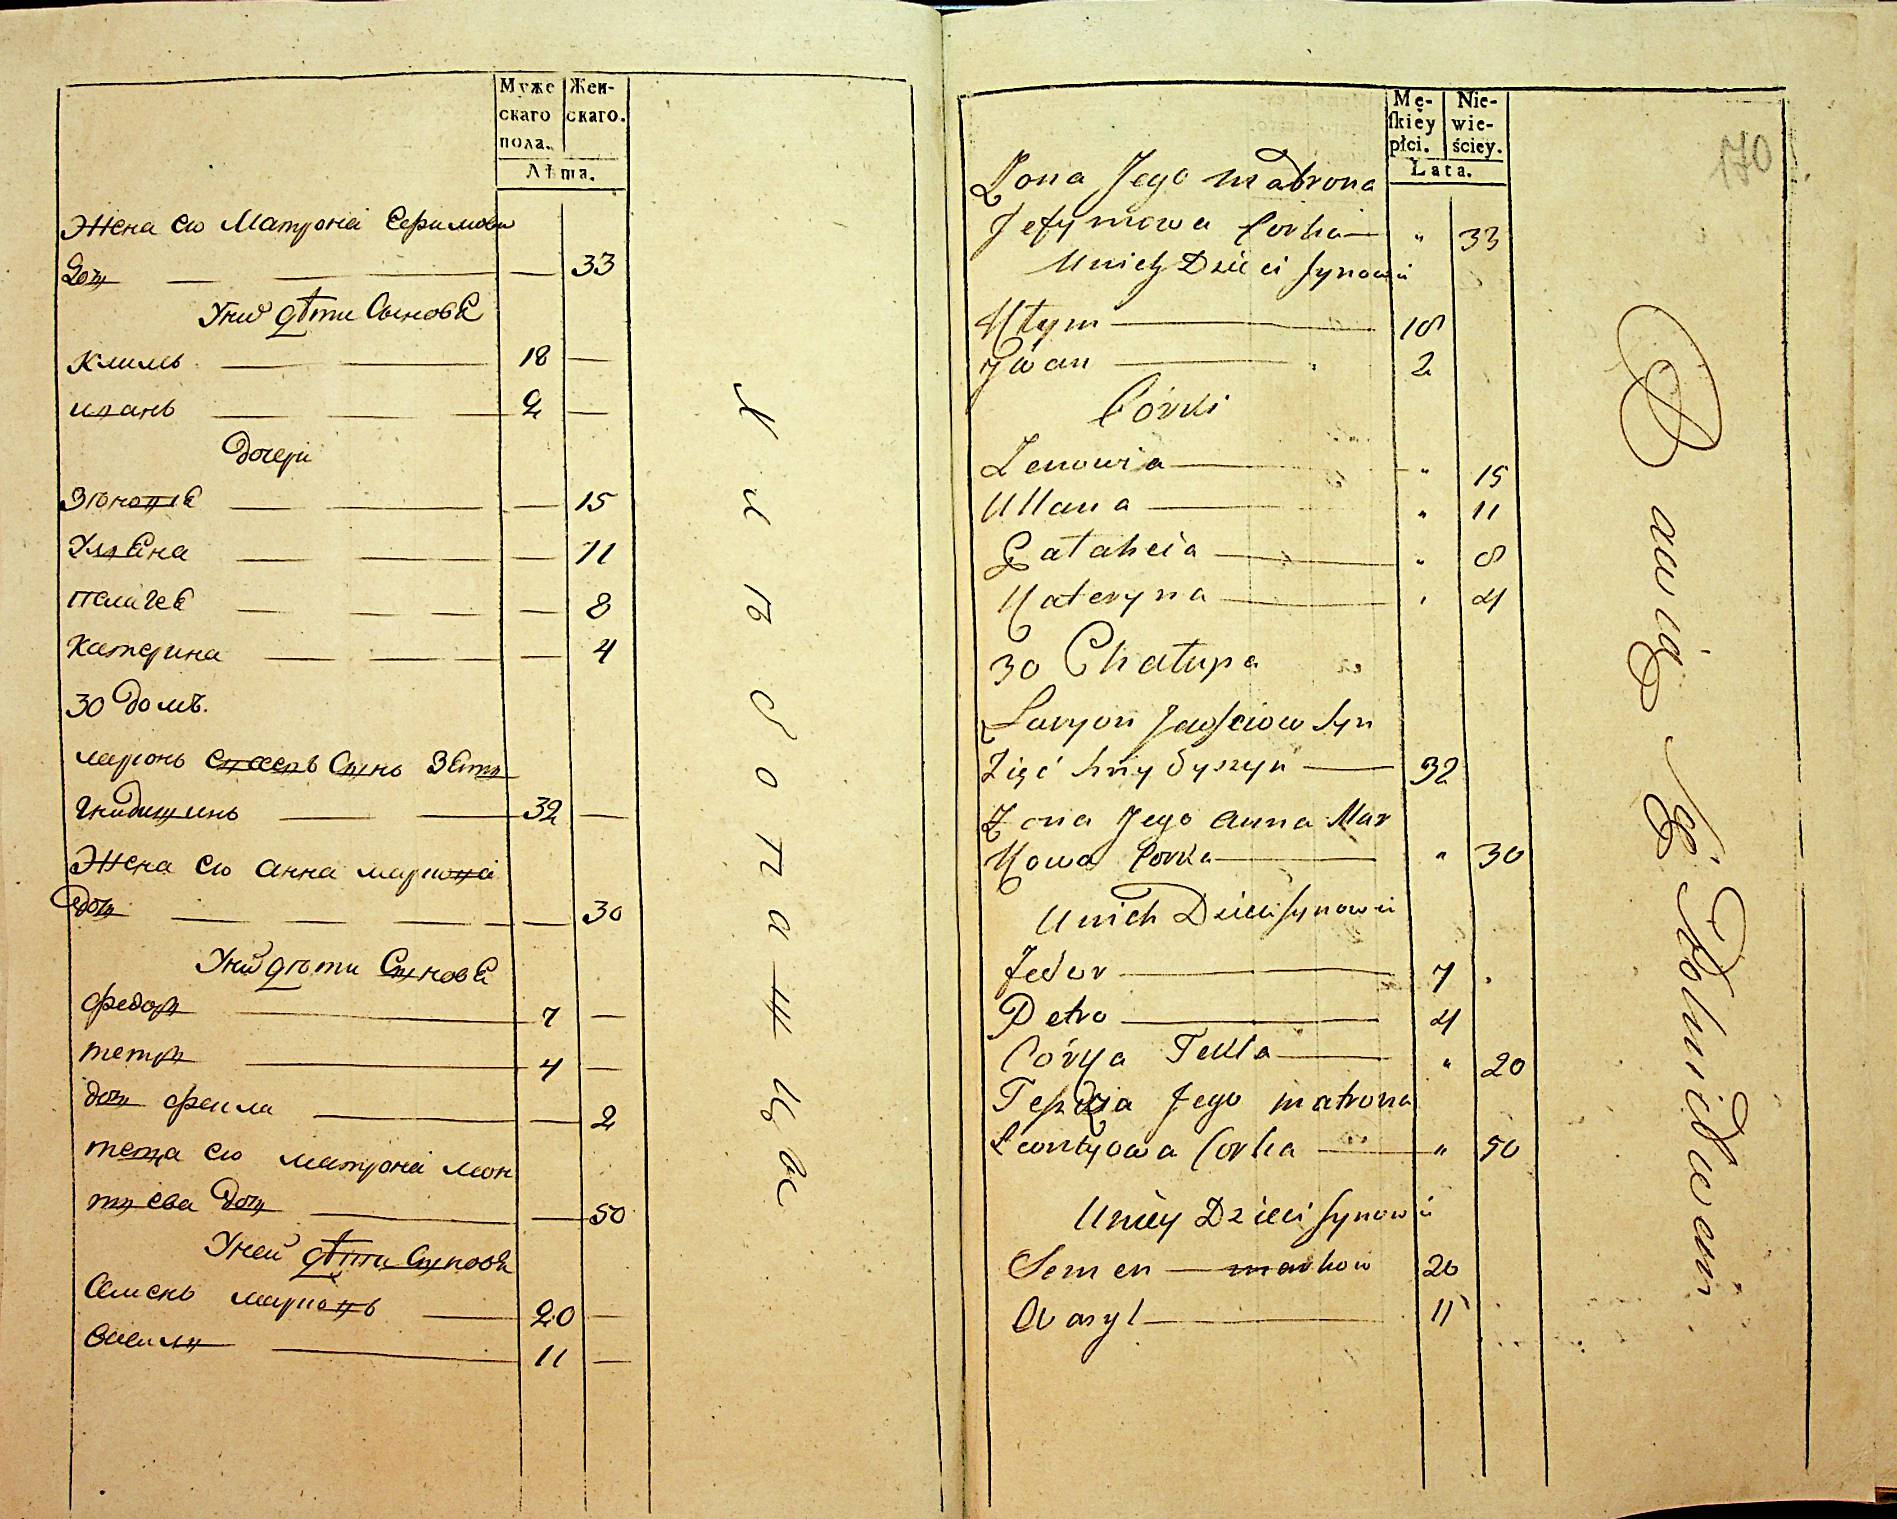 Муже
скаго
пола.
Жен-
скаго.
Лѣта.
Жена его Матрона Ефимова
дочь — — — 33
У них дѣти Сынове
Климъ — — 18 —
иванъ — — — 2 —
дочери
Зѣновіе — — — 15
Улиана — — — 11
пелагее — — — — 8
Катерина — — — — 4
30 домъ.
ларионъ Сынъ зять
32 —
Жена его анна маркова
дочь — — — — 30
У них дѣти Сынове
федоръ — 7 —
петръ — 4 —
дочь фекла — — 2
теща его матрона леон
тиева дочь — — 50
У ней дѣти Сынове
Семенъ — 20 —
василь — 11 —
Mę-
ſkiéy
płci.
Nie-
wie-
ściey.
Lata.
170
Żona Jego matrona
Jefymowa Corka — " 33
U nich Dzieci synowie
Kłym — 18
Jwan — 2
Córki
Zenowia — " 15
Ullana — " 11
Pałaheia — " 8
Kateryna — " 4
30 Chałupa
Laryon syn
Zięć — 32
Żona Jego anna Mar
Kowa Corka — " 30
U nich Dzieci synowie
Fedor — 7
Petro — 4
Córka Tekla — " 20
Teszcza Jego matrona
Leontyowa Corka — " 50
U niey Dzieci synowie
Semen — markow 20
Wasyl — 11